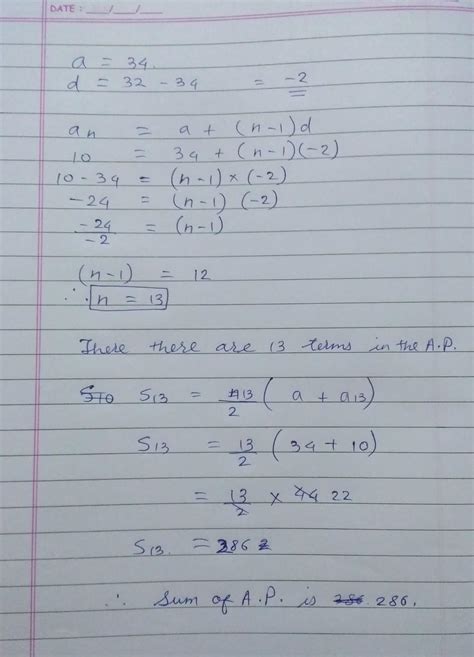 DATE : __/__/__
a = 34.
d = 32 - 34 = -2
an = a + (n-1)d
10 = 34 + (n-1)(-2)
10-34 = (n-1) x (-2)
-24 = (n-1) (-2)
-24/-2 = (n-1)
(n-1) = 12
∴ n = 13
There there are 13 terms in the A.P.
S10 S13 = 13/2 ( a + a13)
S13 = 13/2 ( 34 + 10)
= 13/2 x 44 22
S13. = 286
∴ Sum of A.P. is 286. 286.